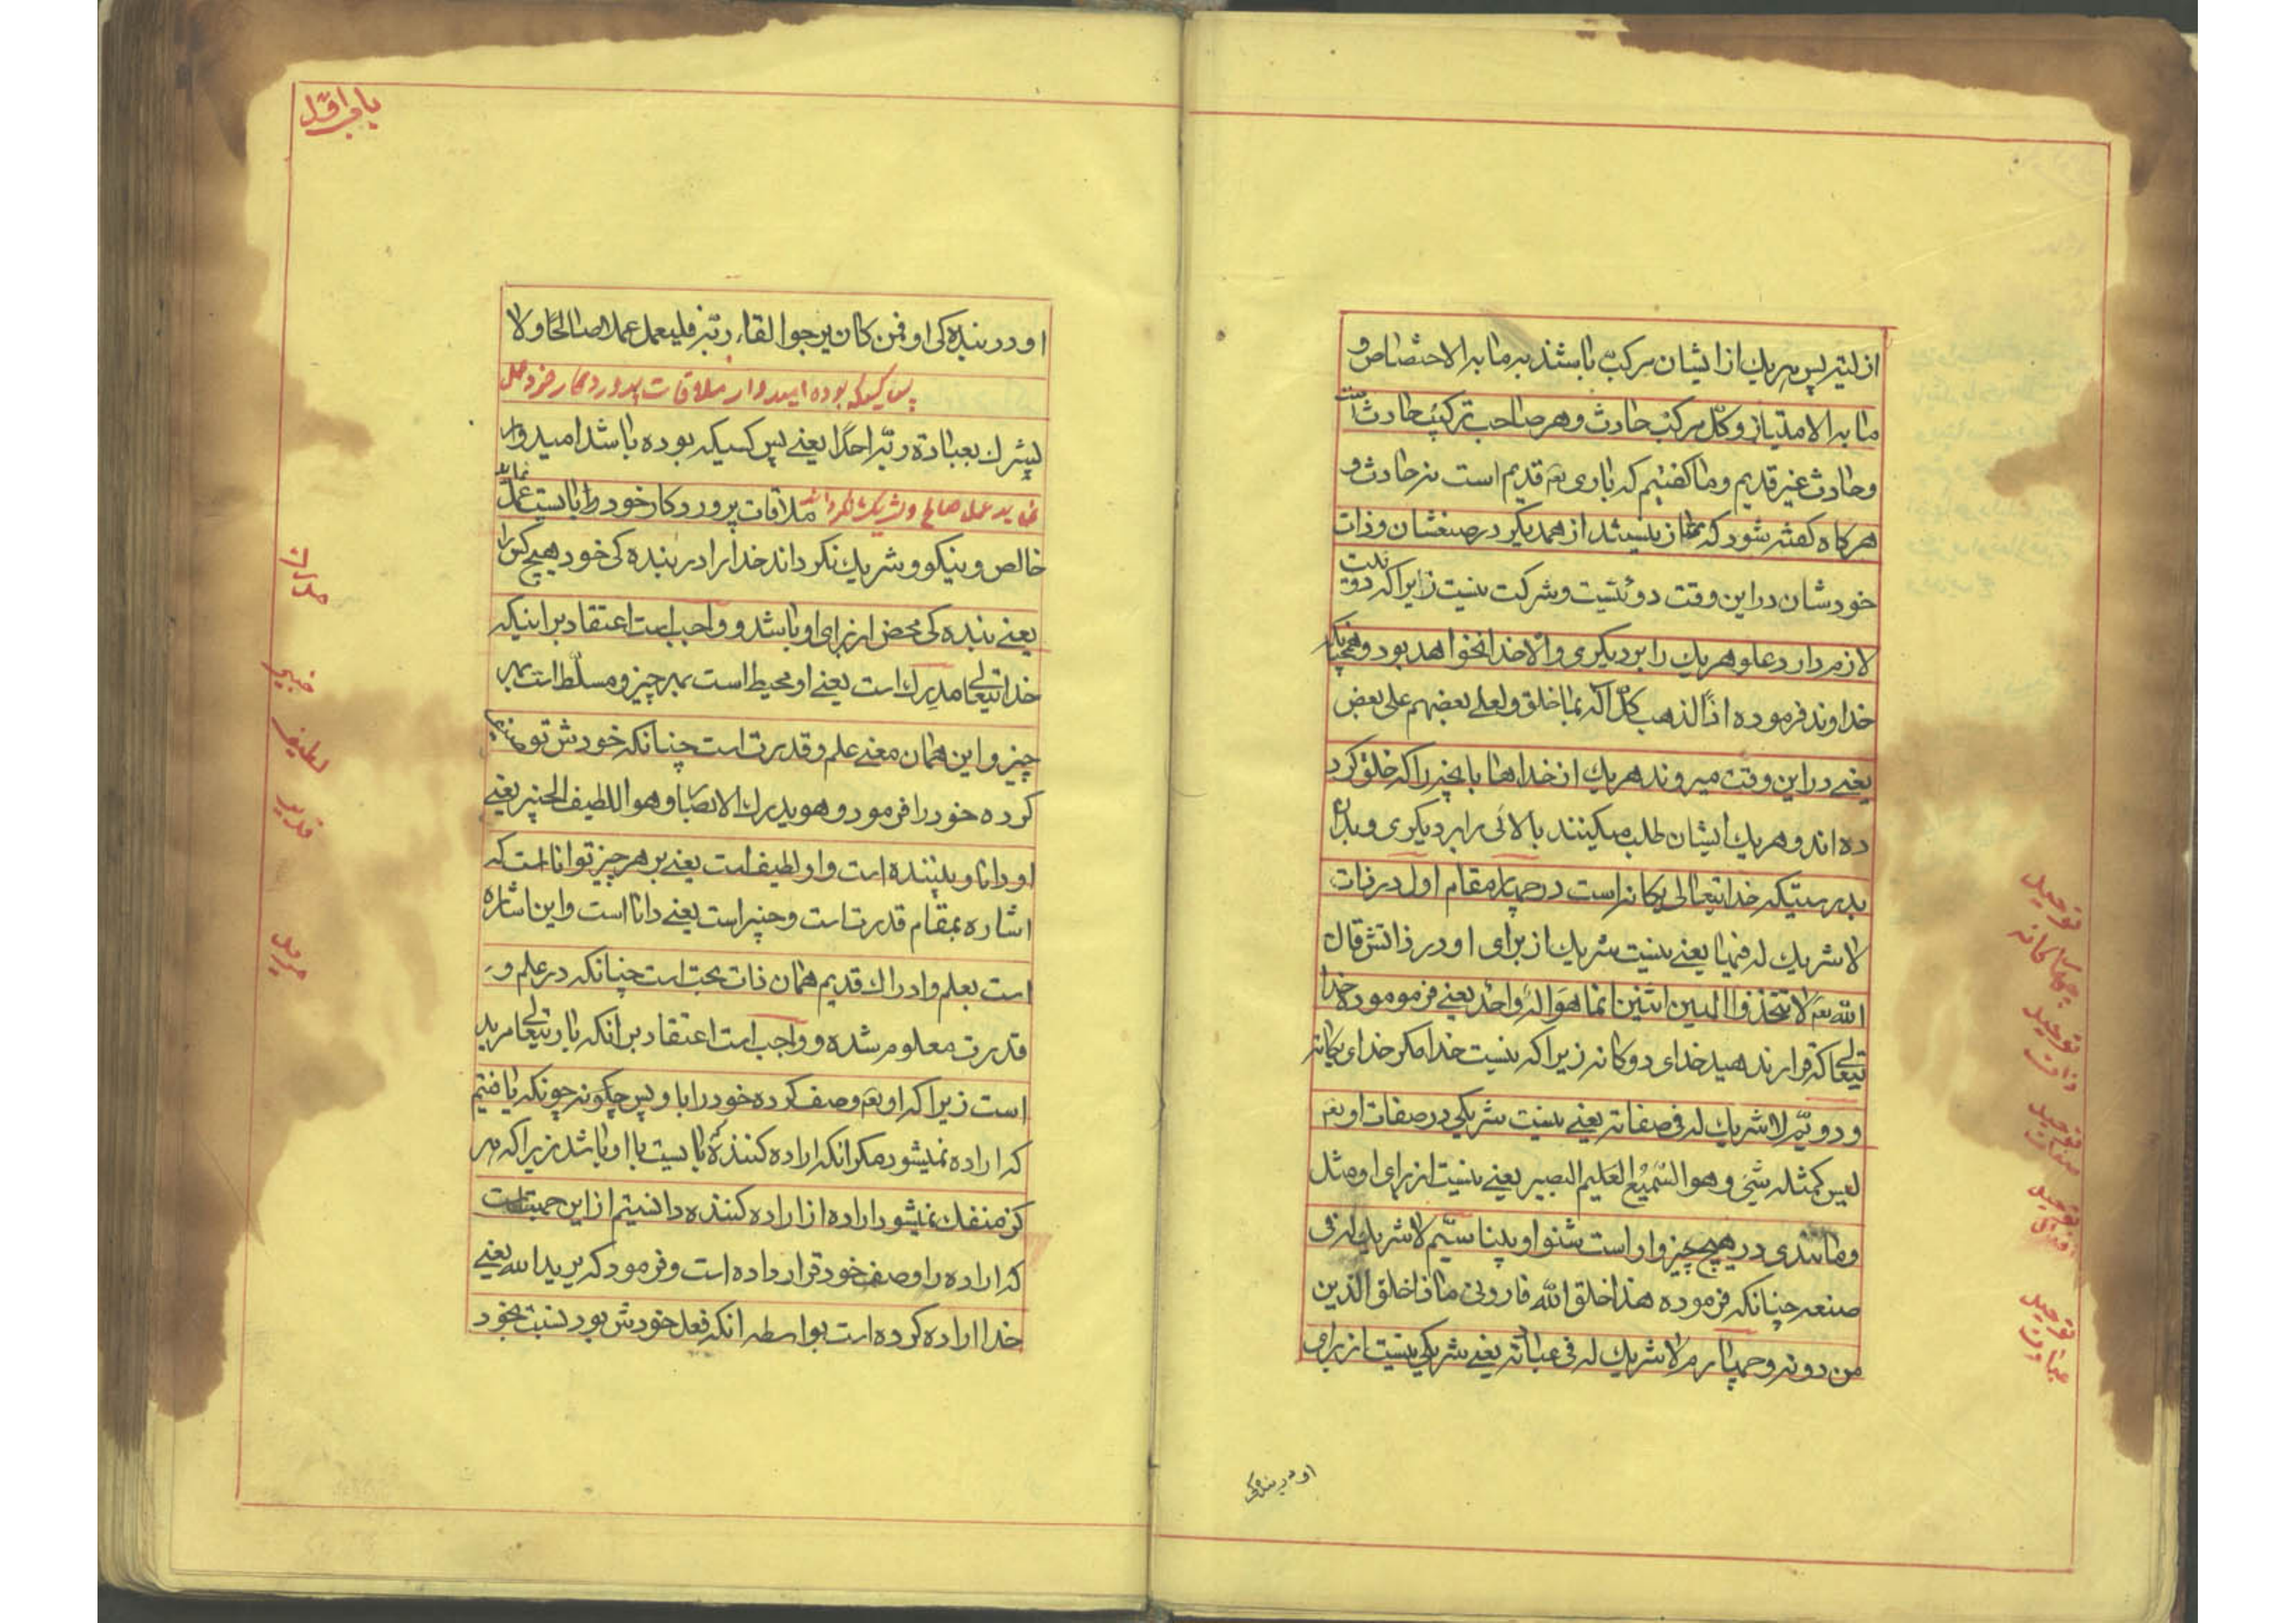 ازلیته پس هریك از ایشان مرکب باشند به ما به الاختصاص و
ما به الامتیاز و کل مرکب حادث و هر صاحب ترکیب حادث است
و حادث غیر قدیم و ما کفتیم که باری تعم قدیم است نه حادث و
هرکاه کفته شود که ممتاز نیستند از همدیکر در صنعشان و ذات
خودشان در این وقت دوئیت و شرکت نیست زیرا که دوئیت
لازم دارد علو هریك را بر دیکری و الا خدا نخواهد بود و همچنانکه
خداوند فرموده اذا لذهب کل اله بما خلق و لعلی بعضهم علی بعض
یعنے در این وقت میروند هریك از خداها با انچه را که خلق کرد
ده اند و هریك ایشان طلب میکینند بالائی را بر دیکری و بدان
بدرستیکه خدایتعالی یکانه است در چهار مقام اول در ذات
لا شریك له فیها یعنے نیست شریك از برای او در ذاتش قال
الله تعم لا تتخذوا الهین اثنین انما هو اله واحد یعنے فرموموده خدا
تیعالے که قرار ندهید خدای دوکانه زیرا که نیست خدا مکر خدای یکانه
و دویم لا شریك له فی صفاته یعنے نیست شریکی در صفات او تعم
لیس کمثله شیء و هو السمیع العلیم البصیر یعنے نیست از برای او مثل
و مانندی در هیچ چیز و او است شنوا و بینا سیم لا شریك له فی
صنعه چنانکه فرموده هذا خلق الله فارونی ماذا خلق الذین
من دونه و چهارم لا شریك له فی عبادته یعنے شریکی نیست از برای
توحید
چهارکانه
توحید
ذات
توحید
صفات
توحید
افعال
توحید
عبادت
او در بندکی
باب اول
او در بنده کی او فمن کان یرجوا لقاء ربه فلیعمل عملا صالحا و لا
پس کسیکه بوده امیدوار ملاقات پروردکار خود عمل
یشرك بعبادة ربه احدا یعنے پس کسیکه بوده باشد امیدوار
نماید عمل صالح و شریك نکرداند ملاقات پروردکار خود را بایست عمل نماید
خالص و نیکو و شریك نکرداند خدا را در بنده کی خود هیچ کس را
یعنے بنده کی محض از برای او باشد و واجب است اعتقاد بر اینکه
خدایتعالے مدرك است یعنے او محیط است بهر چیز و مسلط است بهر
چیز و این همان معنے علم و قدرت است چنانکه خودش توصیف
کرده خود را فرمود و هو یدرك الابصار و هو اللطیف الخبیر یعنے
او دانا و بیننده است و او لطیف است یعنے بر هر چیز توانا است که
اشاره بمقام قدرت است و خبیر است یعنے دانا است و این اشاره
است بعلم و ادراك قدیم همان ذات بحت است چنانکه در علم و
قدرت معلوم شده و واجب است اعتقاد بر انکه باریتعالے مرید
است زیرا که او تعم وصف کرده خود را با و پس چکونه چونکه یافتیم
که اراده نمیشود مکر انکه اراده کننده بایست با او باشد زیرا که هر
کز منفك نمیشود اراده از اراده کننده دانستیم از این جهت است
که اراده را وصف خود قرار داده است و فرمود که یرید الله یعنے
خدا اراده کرده است بواسطه انکه فعل خودش بود نسبت بخود
مدرك
خبیر
لطیف
قدیر
مرید